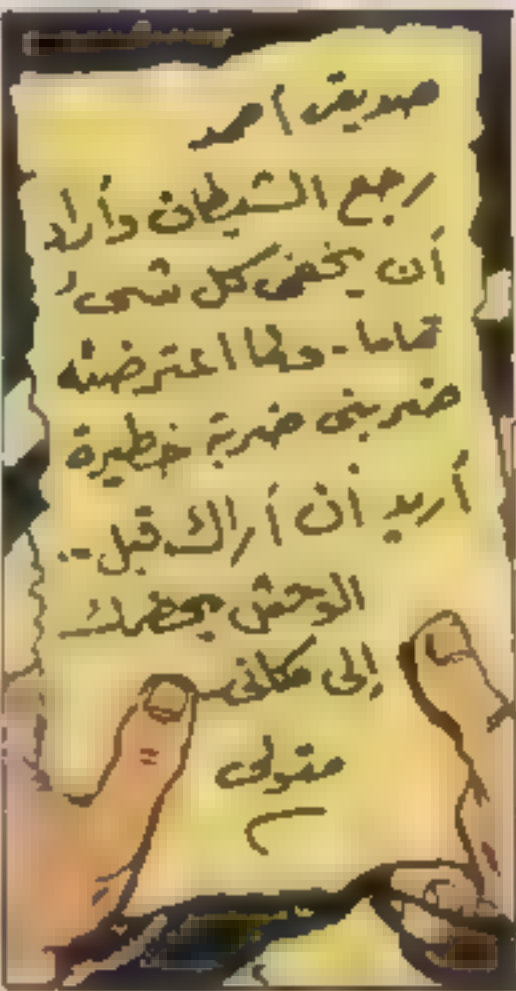 صديقى أحمد
رجع الشيطان وأراد
أن يخفى كل شىء
تماما.. ولما اعترضته
ضربنى ضربة خطيرة
أريد أن أراك قبل..
الوحش يحضرك
إلى مكانى
متولى